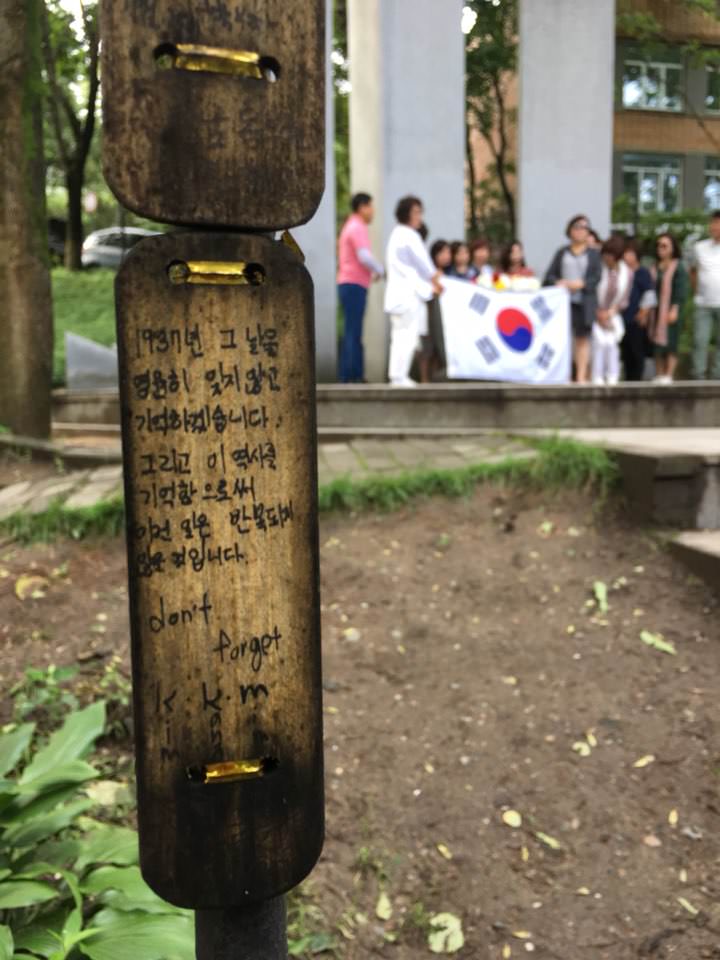 1937년 그 날을
영원히 잊지 않고
기억하겠습니다.
그리고 이 역사를
기억함으로써
이런 일은 반복되지
않을 것입니다.
don't
forget
k.k.m